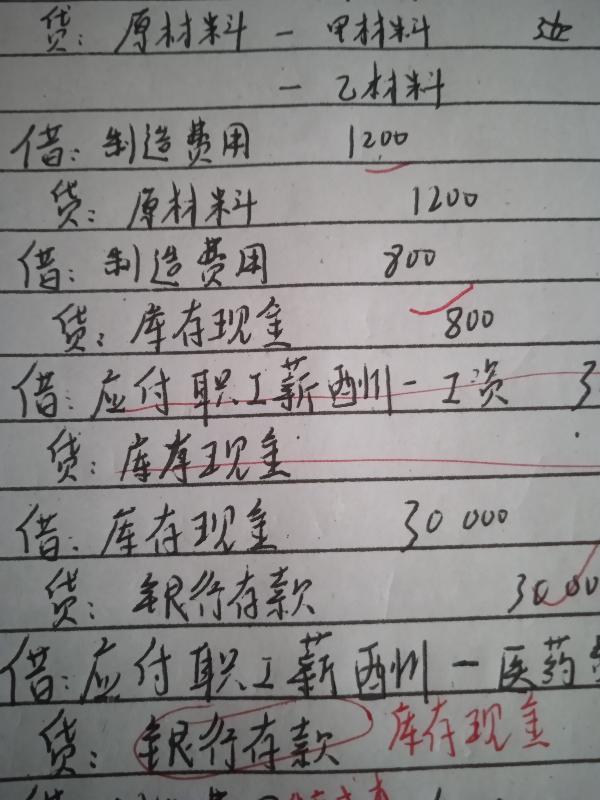 贷: 原材料 - 甲材料
- 乙材料
借: 制造费用 1200
贷: 原材料 1200
借: 制造费用 800
贷: 库存现金 800
借: 应付职工薪酬 - 工资 3
贷: 库存现金
借: 库存现金 30 000
贷: 银行存款 30 00
借: 应付职工薪酬 - 医药
贷: 银行存款 库存现金